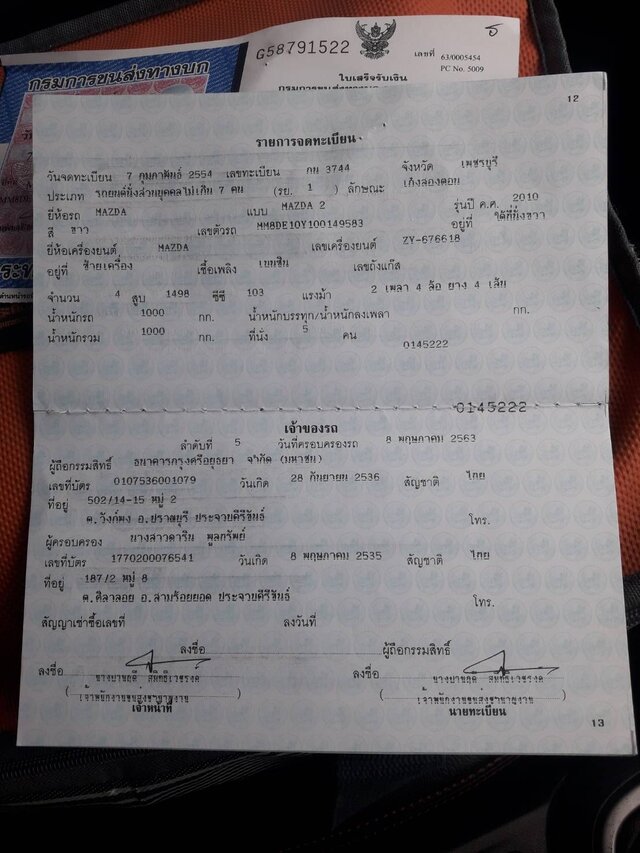 กรมการขนส่งทางบก
G58791522
เลขที่ 63/0005454
PC No. 5009
ใบเสร็จรับเงิน
กรมการขนส่งทางบก
12
รายการจดทะเบียน
วันจดทะเบียน 7 กุมภาพันธ์ 2554 เลขทะเบียน กน 3744 จังหวัด เพชรบุรี
ประเภท รถยนต์นั่งส่วนบุคคลไม่เกิน 7 คน (รย. 1) ลักษณะ เก๋งสองตอน
ยี่ห้อรถ MAZDA แบบ MAZDA 2 รุ่นปี ค.ศ. 2010
สี ขาว เลขตัวรถ MM8DE10Y100149583 อยู่ที่ ใต้ที่นั่งขวา
ยี่ห้อเครื่องยนต์ MAZDA เลขเครื่องยนต์ ZY-676618
อยู่ที่ ซ้ายเครื่อง เชื้อเพลิง เบนซิน เลขถังแก๊ส
จำนวน 4 สูบ 1498 ซีซี 103 แรงม้า 2 เพลา 4 ล้อ ยาง 4 เส้น
น้ำหนักรถ 1000 กก. น้ำหนักบรรทุก/น้ำหนักลงเพลา กก.
น้ำหนักรวม 1000 กก. ที่นั่ง 5 คน
0145222
0145222
เจ้าของรถ
ลำดับที่ 5 วันที่ครอบครองรถ 8 พฤษภาคม 2563
ผู้ถือกรรมสิทธิ์ ธนาคารกรุงศรีอยุธยา จำกัด (มหาชน)
เลขที่บัตร 0107536001079 วันเกิด 28 กันยายน 2536 สัญชาติ ไทย
ที่อยู่ 502/14-15 หมู่ 2
ต.วังก์พง อ.ปราณบุรี ประจวบคีรีขันธ์ โทร.
ผู้ครอบครอง นางสาวดาริน พูลทรัพย์
เลขที่บัตร 1770200076541 วันเกิด 8 พฤษภาคม 2535 สัญชาติ ไทย
ที่อยู่ 187/2 หมู่ 8
ต.ศิลาลอย อ.สามร้อยยอด ประจวบคีรีขันธ์ โทร.
สัญญาเช่าซื้อเลขที่ ลงวันที่
ลงชื่อ ผู้ถือกรรมสิทธิ์
ลงชื่อ ลงชื่อ
เจ้าพนักงานขนส่งชำนาญงาน เจ้าพนักงานขนส่งชำนาญงาน
เจ้าหน้าที่ นายทะเบียน
13